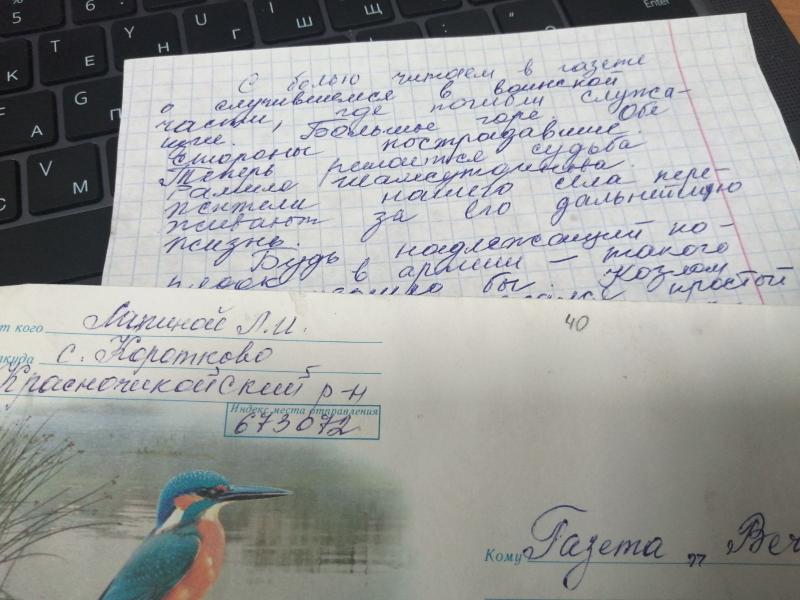 С болью читаем в газете
о случившемся в воинской
части, где погибли служа-
щие. Большое горе. Обе
стороны пострадавшие.
Теперь решается судьба
Рамиля Шамсутдинова.
Жители нашего села пере-
живают за его дальнейшую
жизнь.
Будь надлежащий по-
в армии — такого
бы.
Козлом
простой
от кого Лапиной Л.И.
откуда с. Коротково
Красночикойский р-н
Индекс места отправления
673072
40
Кому Газета „Веч
% 5
6
8
Enter
К
Е
Н
Г
Ш
Щ
З
T
Y
U
I
O
А
F
G
М
V